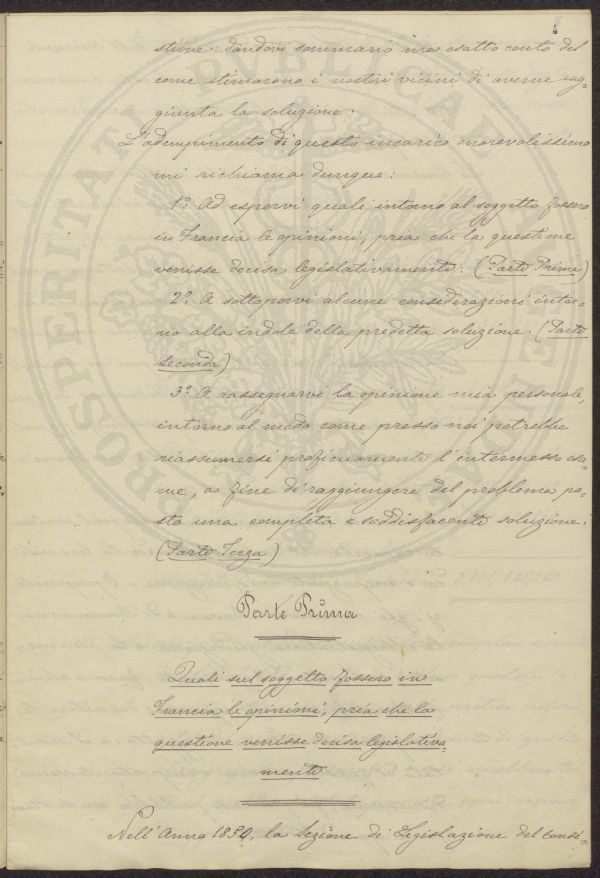 stione: dandovi sommario ma esatto conto del
come stimarono i nostri vicini di averne rag-
giunta la soluzione.
L'adempimento di questo incarico onorevolissimo
mi richiama dunque:
1.º Ad esporvi quali intorno al soggetto fossero
in Francia le opinioni, pria che la questione
venisse decisa legislativamente. (Parte Prima)
2.º A sottoporvi alcune considerazioni intor-
no alla indole della predetta soluzione. (Parte
Seconda)
3.º A rassegnarvi la opinione mia personale,
intorno al modo come presso noi potrebbe
riassumersi proficuamente l'intermesso esa-
me, a fine di raggiungere del problema po-
sto una completa e soddisfacente soluzione.
(Parte Terza)
Parte Prima
Quali sul soggetto fossero in
Francia le opinioni, pria che la
questione venisse decisa legislativa-
mente
Nell'Anno 1850, la Sezione di Legislazione del Consi-
PROSPERITATI PUBLICAE